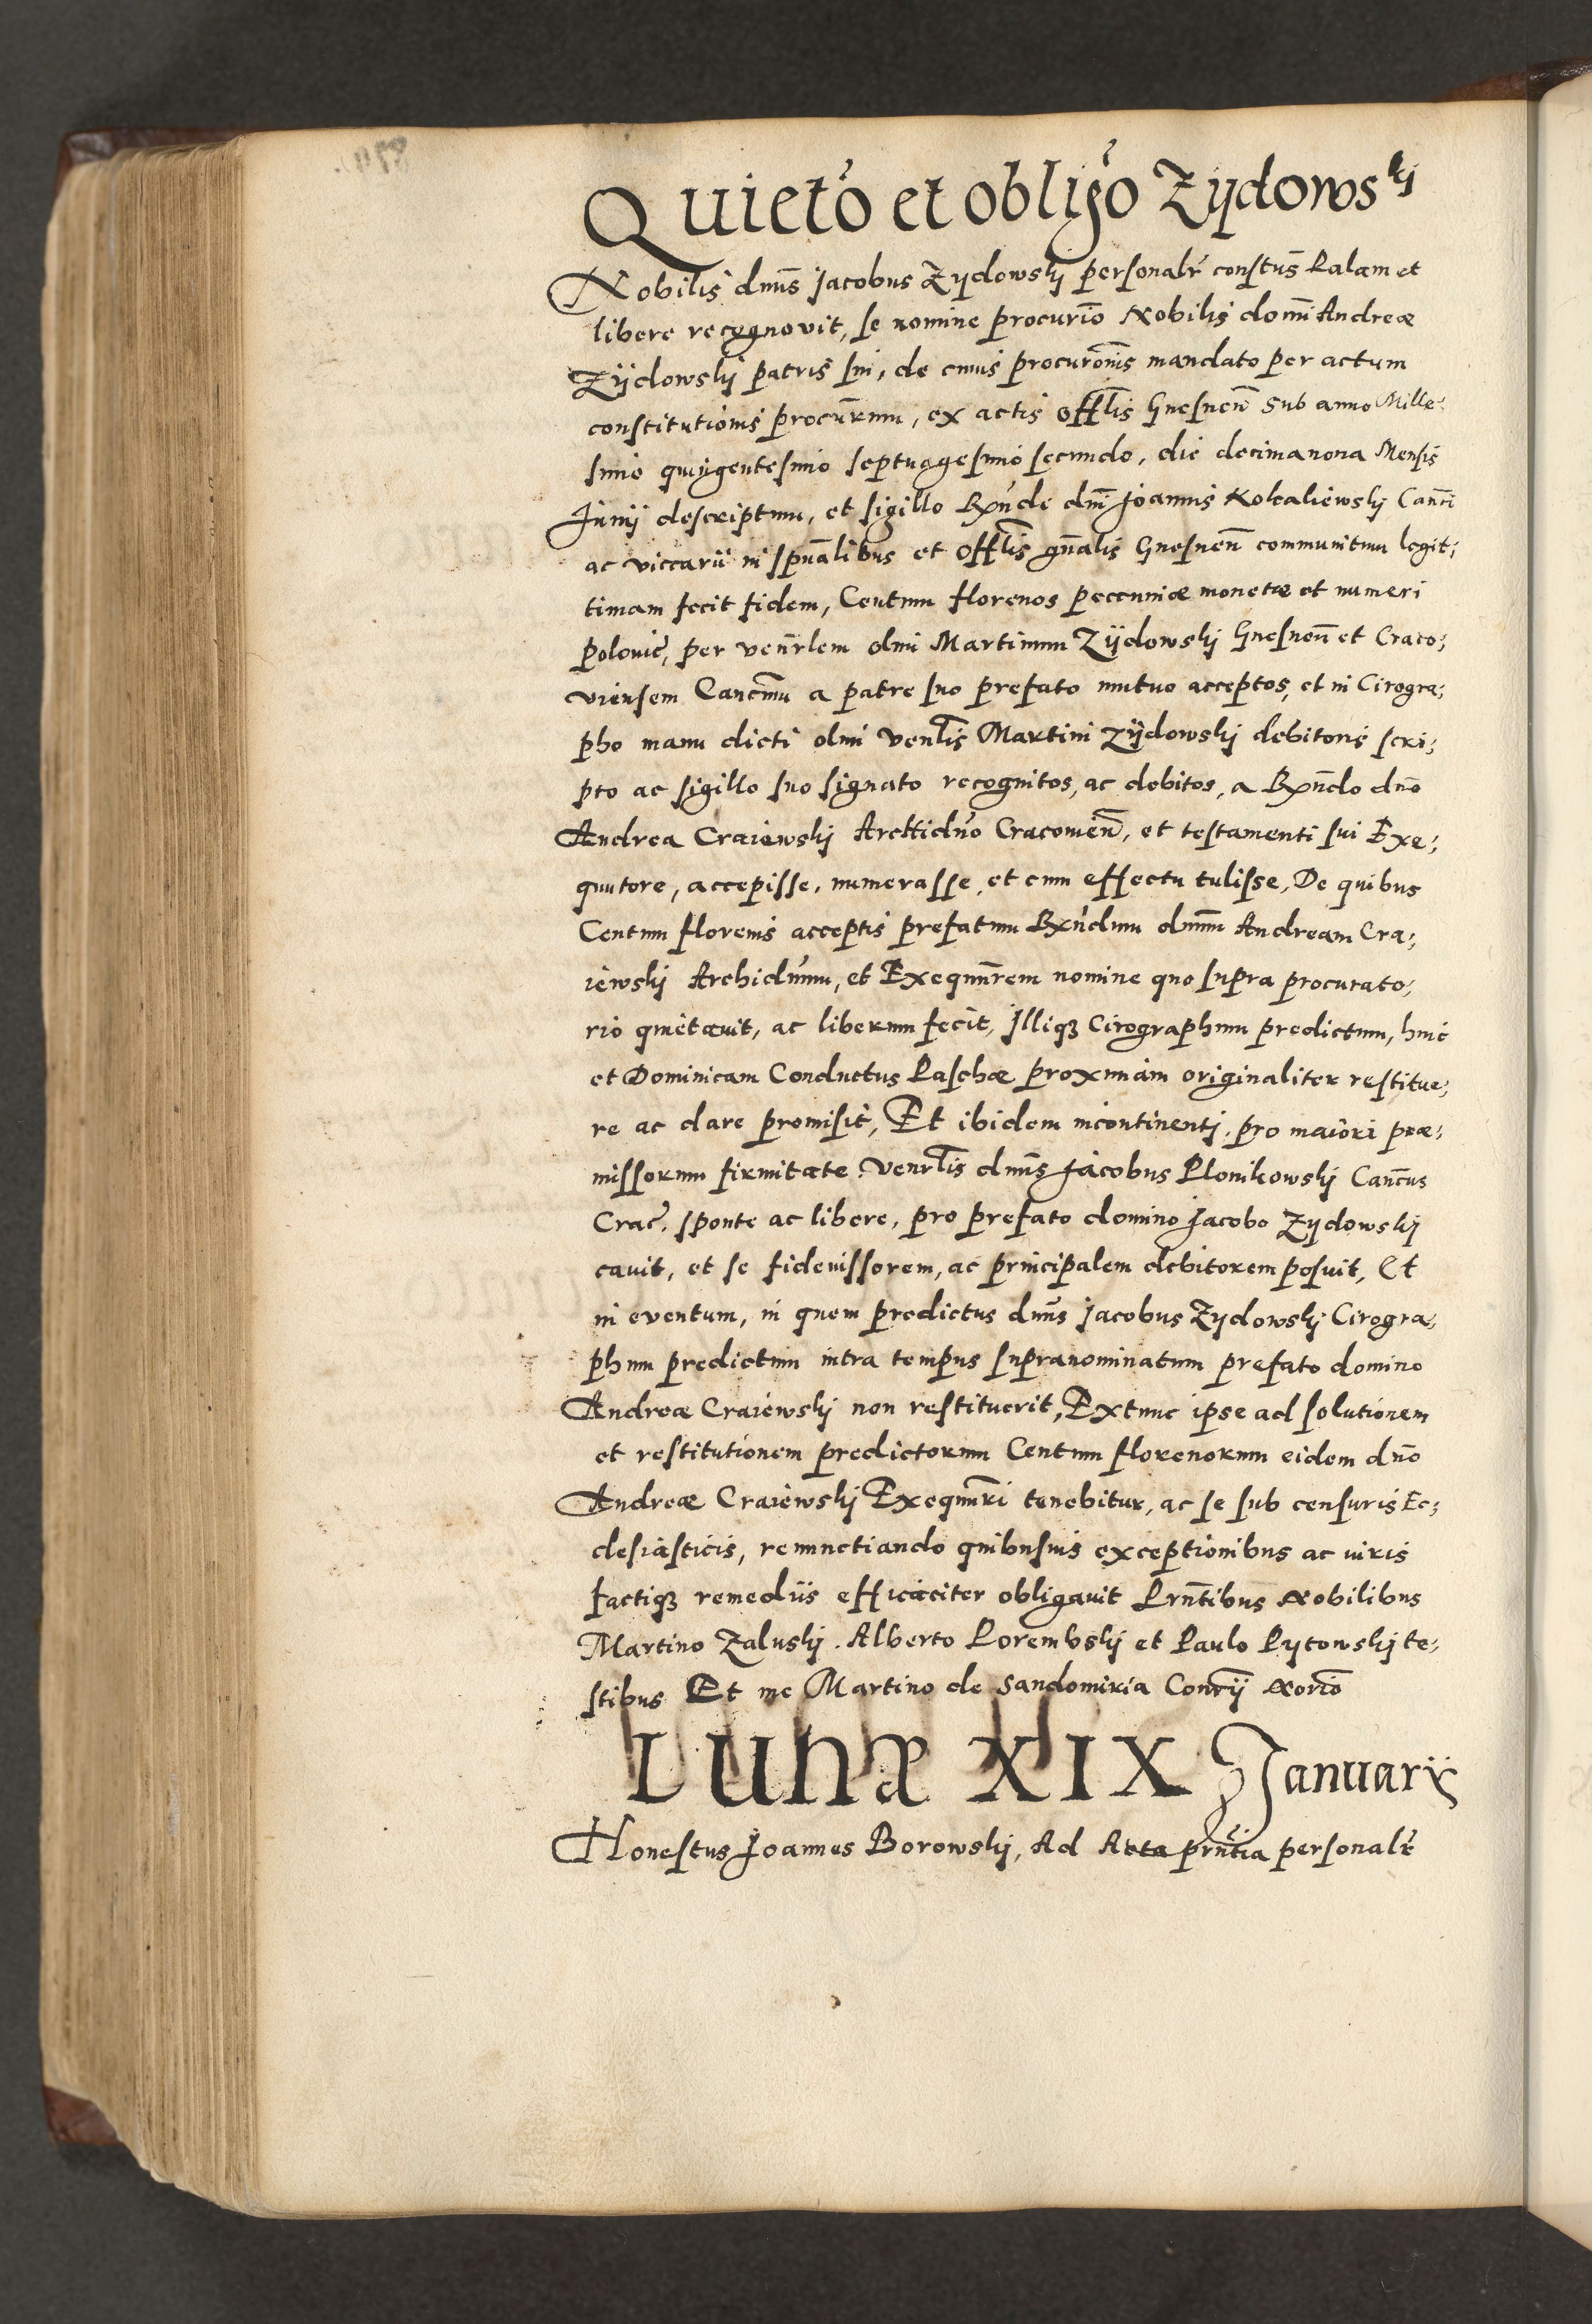 Quietõ et obligõ Zÿdowskj
Nobilis dnũs Jacobus Zÿdowskj personalr̃ constus̃ Palam et
libere recognovit, se nomine procuriõ Nobilis domi͂ Andreæ
Zÿdowskj patris sui, de cuius procurõnis mandato per actum
constitutionis procur̃num, ex actis offl̃is Gnesnen̄ sub anno Mille-
simo quingentesimo septuagesimo secundo, die decimanona Mensis
Junij descriptum, et sigillo Rxñdi dnĩ Joannis Kokaliewskj Canc̃i
ac viccarii in spũalibus et offl̃is gñalis Gnesnen̄ communitum legit-
timam fecit fidem, Centum florenos peccuniæ monetæ et numeri
polonic̃, per venr̃lem olim Martinum Zÿdowskj Gnesnen̄ et Craco-
viensem Canc̃um a patre suo prefato mutuo acceptos, et in Cirogra-
pho manu dicti olim Venl̃is Martini Zÿdowskj debitoris scri-
pto ac sigillo suo signato recognitos, ac debitos, a Rxñdo dnõ
Andrea Craiewskj Archidnõ Cracovien̄, et testamenti sui Exe-
quutore, accepisse, numerasse, et cum effectu tulisse, De quibus
Centum florenis acceptis prefatum Rxñdum dnũm Andream Cra-
iewskj Archidnũm, et Exequut̃rem nomine quo supra procurato-
rio quietavit, ac liberum fecit, Illiq3 Cirographum predictum, hinc
et Dominicam Conductus Paschæ proximam originaliter restitue-
re ac dare promisit, Et ibidem incontinentj, pro maiori præ-
missorum firmitate Venrl̃is dnũs Jacobus Plonikowskj Canc̃us
Crac̃. sponte ac libere, pro prefato domino Jacobo Zydowskj
cavit, et se fideiussorem, ac principalem debitorem posuit, Et
in eventum, in quem predictus dnũs Jacobus Zydowskj Cirogra-
phum predictum intra tempus supranominatum prefato domino
Andreæ Craiewskj non restituerit, Extunc ipse ad solutionem
et restitutionem predictorum Centum florenorum eidem dnõ
Andreæ Craiewskj Exequut̃ri tenebitur, ac se sub censuris Ec-
clesiasticis, renunctiando quibusuis exceptionibus ac iuris
factiq3 remediis efficaciter obligavit Prñtibus Nobilibus
Martino Zaluskj. Alberto Porembskj et Paulo Pytowskj te-
stibus Et me Martino de Sandomiria Conr̃ij Noriõ
Lunæ XIX Januarii
Honestus Joannes Borowskj, Ad Acta prñtia personalr̃